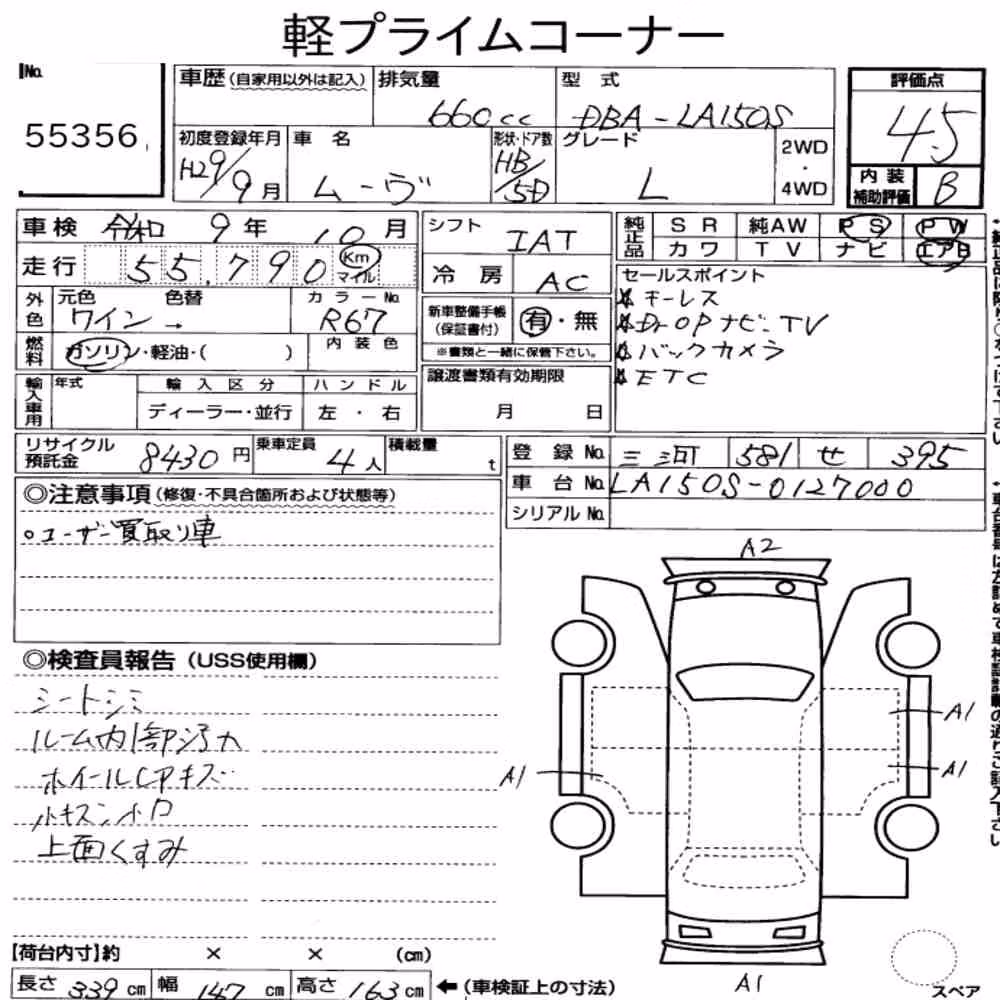 軽プライムコーナー
No. 55356
車歴(自家用以外は記入) 排気量 660cc 型式 DBA-LA150S
評価点 4.5
初度登録年月 H29/9月 車名 ムーヴ 形状・ドア数 HB/5D グレード L 2WD・4WD
内装補助評価 B
車検 令和 9年 10月 シフト IAT
純正品 SR 純AW PS PW
カワ TV ナビ エアB
走行 55,790 Km マイル 冷房 AC
セールスポイント
キーレス
DrOPナビ・TV
バックカメラ
ETC
外色 元色 ワイン → 色替 カラーNo. R67
新車整備手帳(保証書付) 有・無
※書類と一緒に保管下さい。
燃料 ガソリン・軽油・( ) 内装色
譲渡書類有効期限 月 日
輸入車用 年式 輸入区分 ハンドル
ディーラー・並行 左・右
リサイクル預託金 8430円 乗車定員 4人 積載量 t
登録No. 三河 581 せ 395
車台No. LA150S-0127000
シリアルNo.
◎注意事項(修復・不具合箇所および状態等)
○ユーザー買取り車
◎検査員報告(USS使用欄)
シートシミ
ルーム内部汚れ
ホイールCPキズ
小キズ小凹
上面くすみ
A2
A1
A1
A1
A1
スペア
【荷台内寸】約 × × (cm)
長さ 339cm 幅 147cm 高さ 163cm ←(車検証上の寸法)